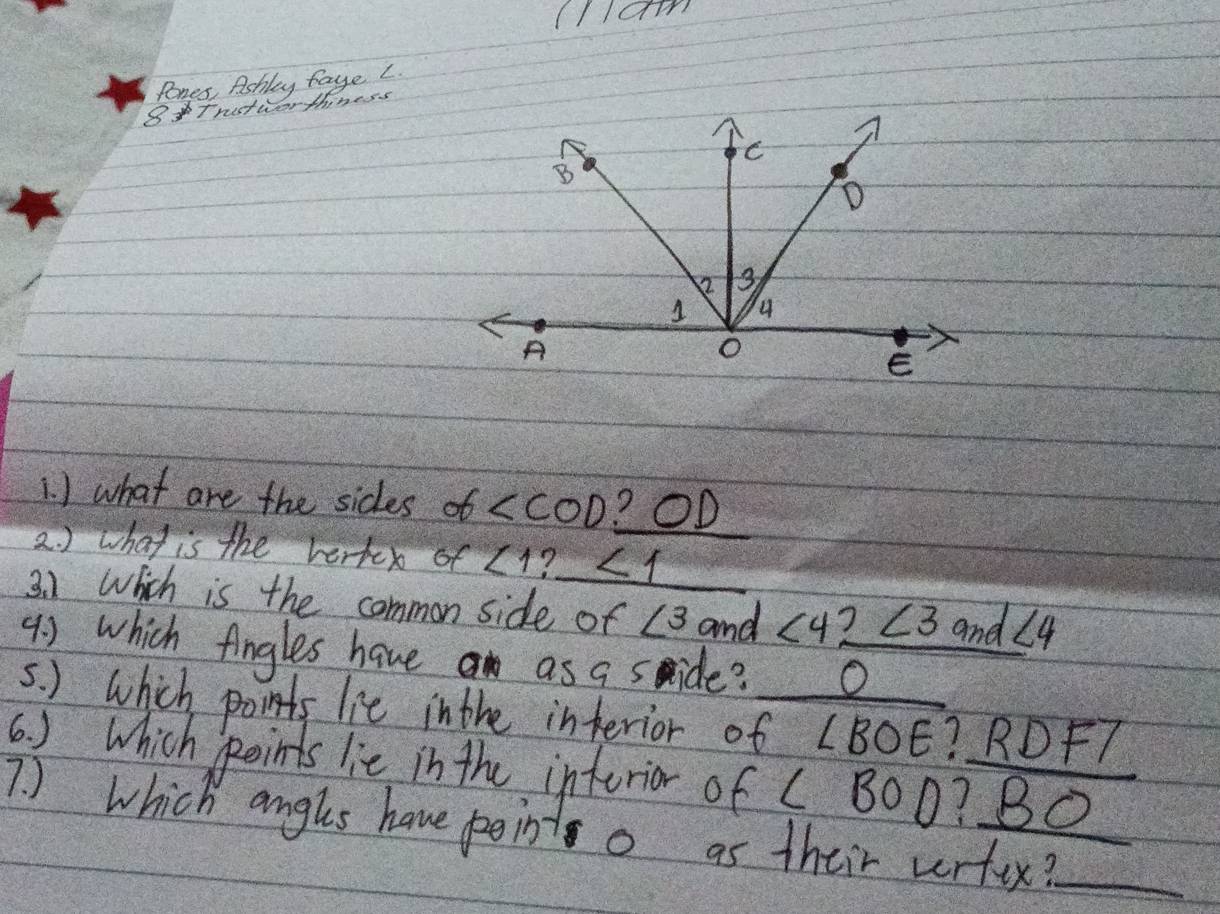 Math
Pones, Ashley Faye L.
8 Trustworthiness
B
C
D
2
3
1
4
A
O
E
1.) what are the sides of <COD? OD
2.) what is the vertex of <1? <1
3.) Which is the common side of <3 and <4? <3 and <4
4.) Which Angles have as a side? O
5.) Which points lie in the interior of <BOE?
6.) Which points lie in the interior of < BOD? BO
7.) Which angles have points O as their vertex?